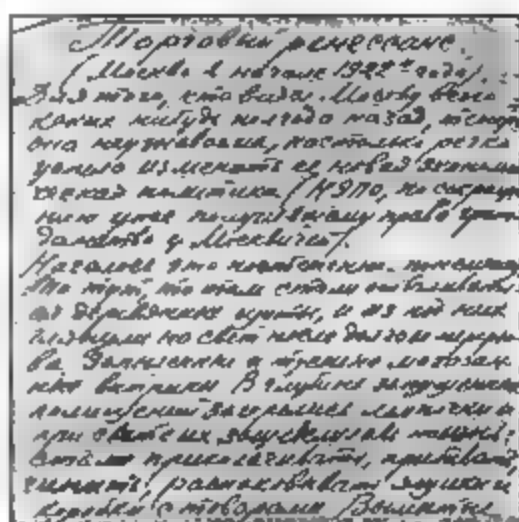 Торговый ренессанс.
(Москва в начале 1922-го года).
Для того, кто видел Москву всего
каких-нибудь полгода назад, теперь
она неузнаваема, настолько резко
успела изменить ее новая экономи-
ческая политика (НЭПО, по сокраще-
нию уже получившему право граж-
данства у Москвичей).
Началось это постепенно. понемногу
То тут, то там стали отваливать
деревянные щиты, и из под них
глянули на свет после долгого переры-
ва запыленные и тусклые магазин-
ные витрины. В глубине запущенных
помещений загорались лампочки и
при свете их зашевелилась жизнь:
стали приколачивать, прибивать,
чинить, распаковывать ящики и
коробки с товарами. Вымытые